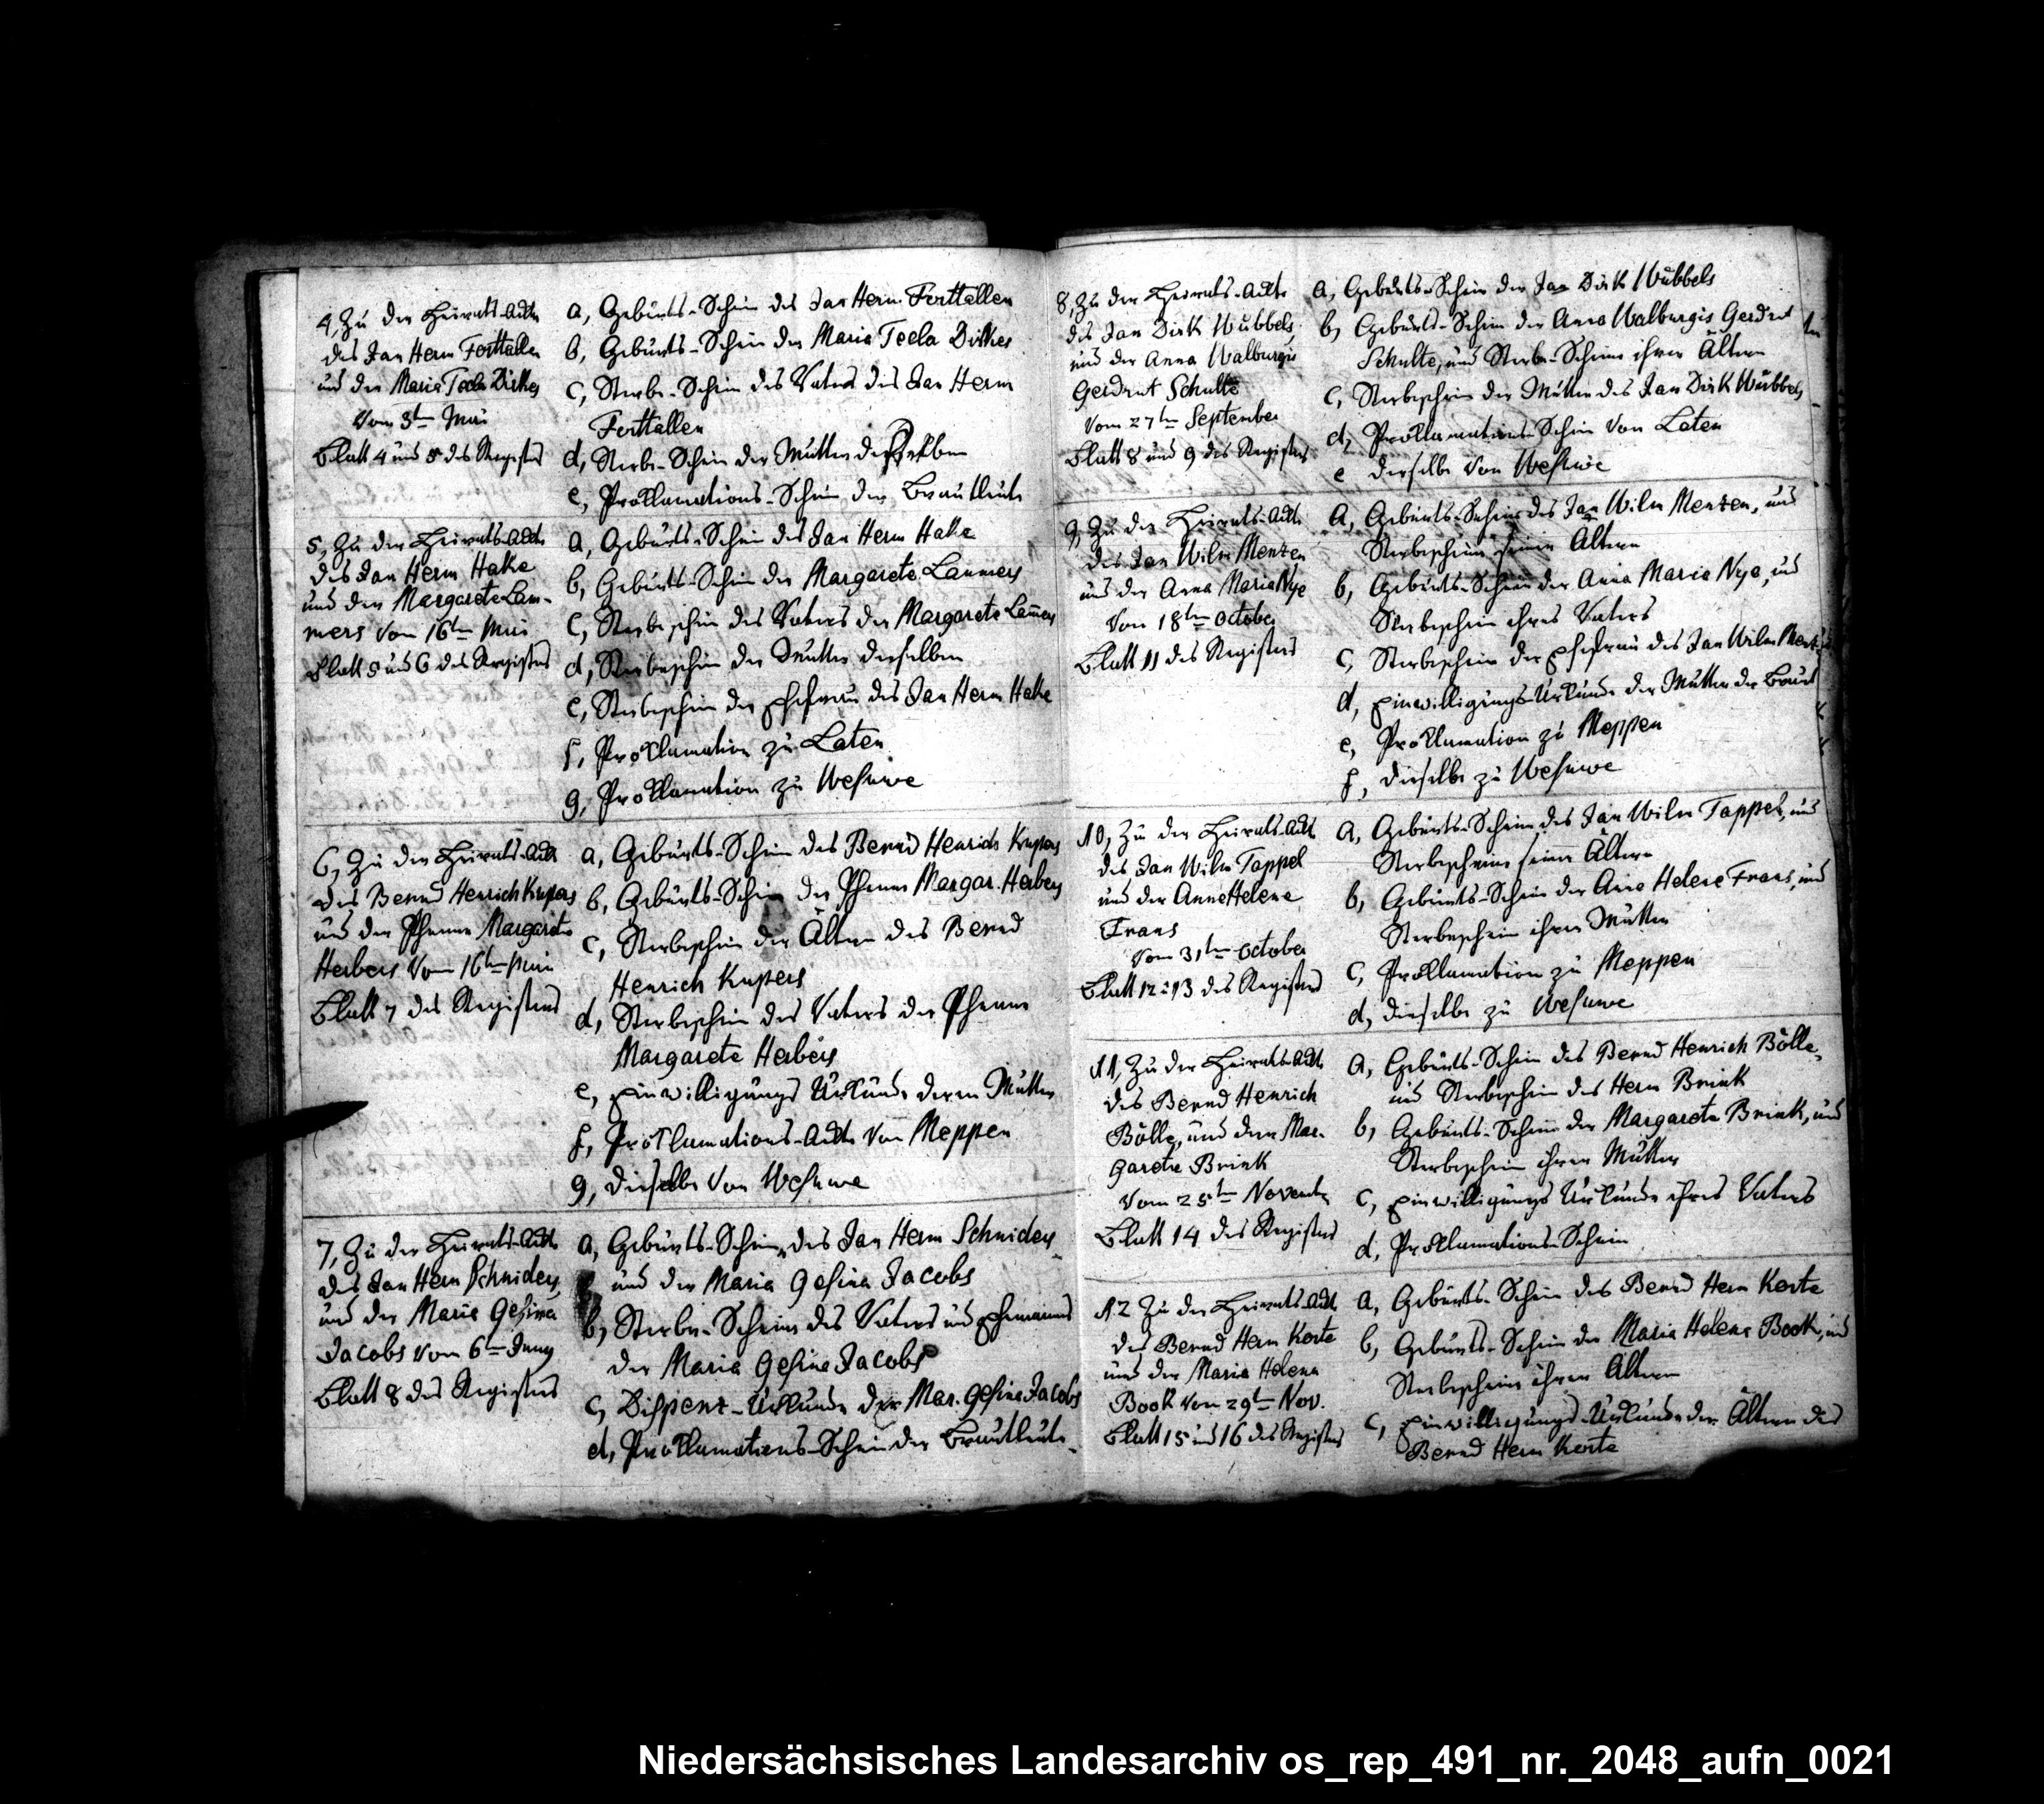 4, Zu der Heirats-Acte
des Jan Herm Forttallen
und der Maria Tecla Dirkes
Vom 3ten Mai
Blatt 4 und 5 des Registers
a, Geburts-Schein des Jan Herm Forttallen
b, Geburts-Schein der Maria Tecla Dirkes
c, Sterbe-Schein des Vaters des Jan Herm
Forttallen
d, Sterbe-Schein der Mutter desselben
e, Proklamations-Schein der Brautleute
5, Zu der Heirats-Acte
des Jan Herm Hake
und der Margarete Lam-
mers Vom 16ten Mai
Blatt 5 und 6 des Registers
a, Geburts-Schein des Jan Herm Hake
b, Geburts-Schein der Margarete Lammers
c, Sterbeschein des Vaters der Margarete Lam̄ers
d, Sterbeschein der Mutter derselben
e, Sterbeschein der Ehefrau des Jan Herm Hake
f, Proklamation zu Laten
g, Proklamation zu Wesuwe
6, Zu der Heirats-Acte
des Bernd Henrich Kupers
und der Phenne Margarete
Herbers Vom 16ten Mai
Blatt 7 des Registers
a, Geburts-Schein des Bernd Henrich Kupers
b, Geburts-Schein der Phenne Margar. Herbers
c, Sterbeschein der Ältern des Bernd
Henrich Kupers
d, Sterbeschein des Vaters der Phenne
Margarete Herbers
e, Einwilligungs Urkunde deren Mutter
f, Proklamations-Acte Von Meppen
g, dieselbe Von Wesuwe
7, Zu der Heirats-Acte
des Jan Herm Schniders,
und der Maria Gesina
Jacobs Vom 6ten Juny
Blatt 8 des Registers
a, Geburts-Schein des Jan Herm Schniders
und der Maria Gesina Jacobs
b, Sterbe-Schein des Vaters und Ehemannes
der Maria Gesina Jacobs
c, Dispens-Urkunde der Mar. Gesina Jacobs
d, Proklamations-Schein der Brautleute.
8, Zu der Heirats-Acte
des Jan Dirk Wubbels,
und der Anna Walburgis
Gerdrut Schulte
Vom 27ten September
Blatt 8 und 9 des Registers
a, Geburts-Schein des Jan Dirk Wubbels
b, Geburts-Schein der Anna Walburgis Gerdrut
Schulte, und Sterbe-Scheine ihrer Ältern
c, Sterbeschein der Mutter des Jan Dirk Wubbels
d, Proklamations-Schein Von Laten
e derselbe Von Wesuwe
9, Zu der Heirats-Acte
des Jan Wilm Menzen
und der Anna Maria Nye
Von 18ten October
Blatt 11 des Registers
a, Geburts-Schein des Jan Wilm Menzen, und
Sterbescheine seiner Ältern
b, Geburts-Schein der Anna Maria Nye, und
Sterbeschein ihres Vaters
c, Sterbeschein der Ehefrau des Jan Wilm
d, Einwilligungs-Urkunde der Mutter der Braut
e, Proklamation zu Meppen
f, dieselbe zu Wesuwe
10, Zu der Heirats-Acte
des Jan Wilm Tappel
und der Anna Helene
Frans
Vom 31ten October
Blatt 12 : 13 des Registers
a, Geburts-Schein des Jan Wilm Tappel, und
Sterbescheine seiner Ältern
b, Geburts-Schein der Anna Helene Frans, und
Sterbeschein ihrer Mutter
c, Proklamation zu Meppen
d, dieselbe zu Wesuwe
11, Zu der Heirats-Acte
des Bernd Henrich
Bölle, und der Mar-
garete Brink
Vom 25ten November
Blatt 14 des Registers
a, Geburts-Schein des Bernd Henrich Bölle,
und Sterbeschein des Herm Brink
b, Geburts-Schein der Margarete Brink, und
Sterbeschein ihrer Mutter
c, Einwilligungs Urkunde ihres Vaters
d, Proklamations-Schein
12 Zu der Heirats-Acte
des Bernd Herm Korte
und der Maria Helena
Book Vom 29ten Nov.
Blatt 15 und 16 des Registers
a, Geburts-Schein des Bernd Herm Korte
b, Geburts-Schein der Maria Helena Book, und
Sterbescheine ihrer Ältern
c, Einwilligungs-Urkunde der Ältern des
Bernd Herm Korte
Niedersächsisches Landesarchiv os_rep_491_nr._2048_aufn_0021